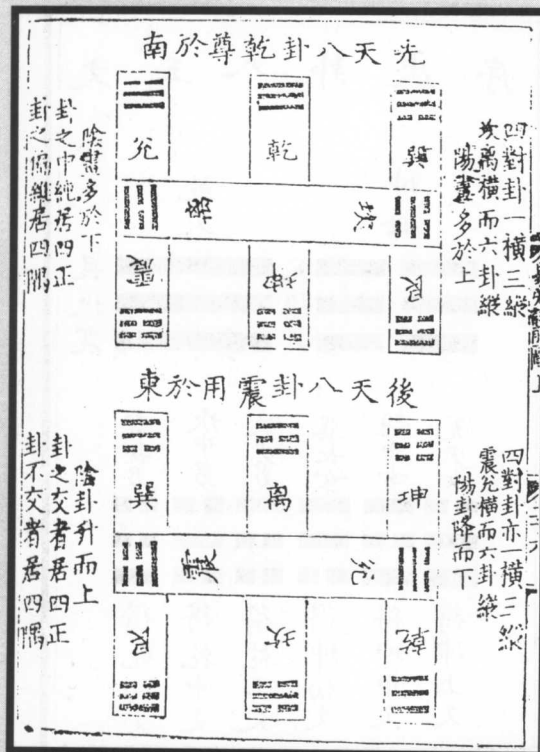 先天八卦乾尊於南
四對卦一橫三縱
坎離橫而六卦縱
陽畫多於上
巽 乾 兌
坎 離
艮 坤 震
陰畫多於下
卦之中純居四正
卦之偏維居四隅
後天八卦震用於東
四對卦亦一橫三縱
震兌橫而六卦縱
陽卦降而下
坤 離 巽
兌 震
乾 坎 艮
陰卦升而上
卦之交者居四正
卦不交者居四隅